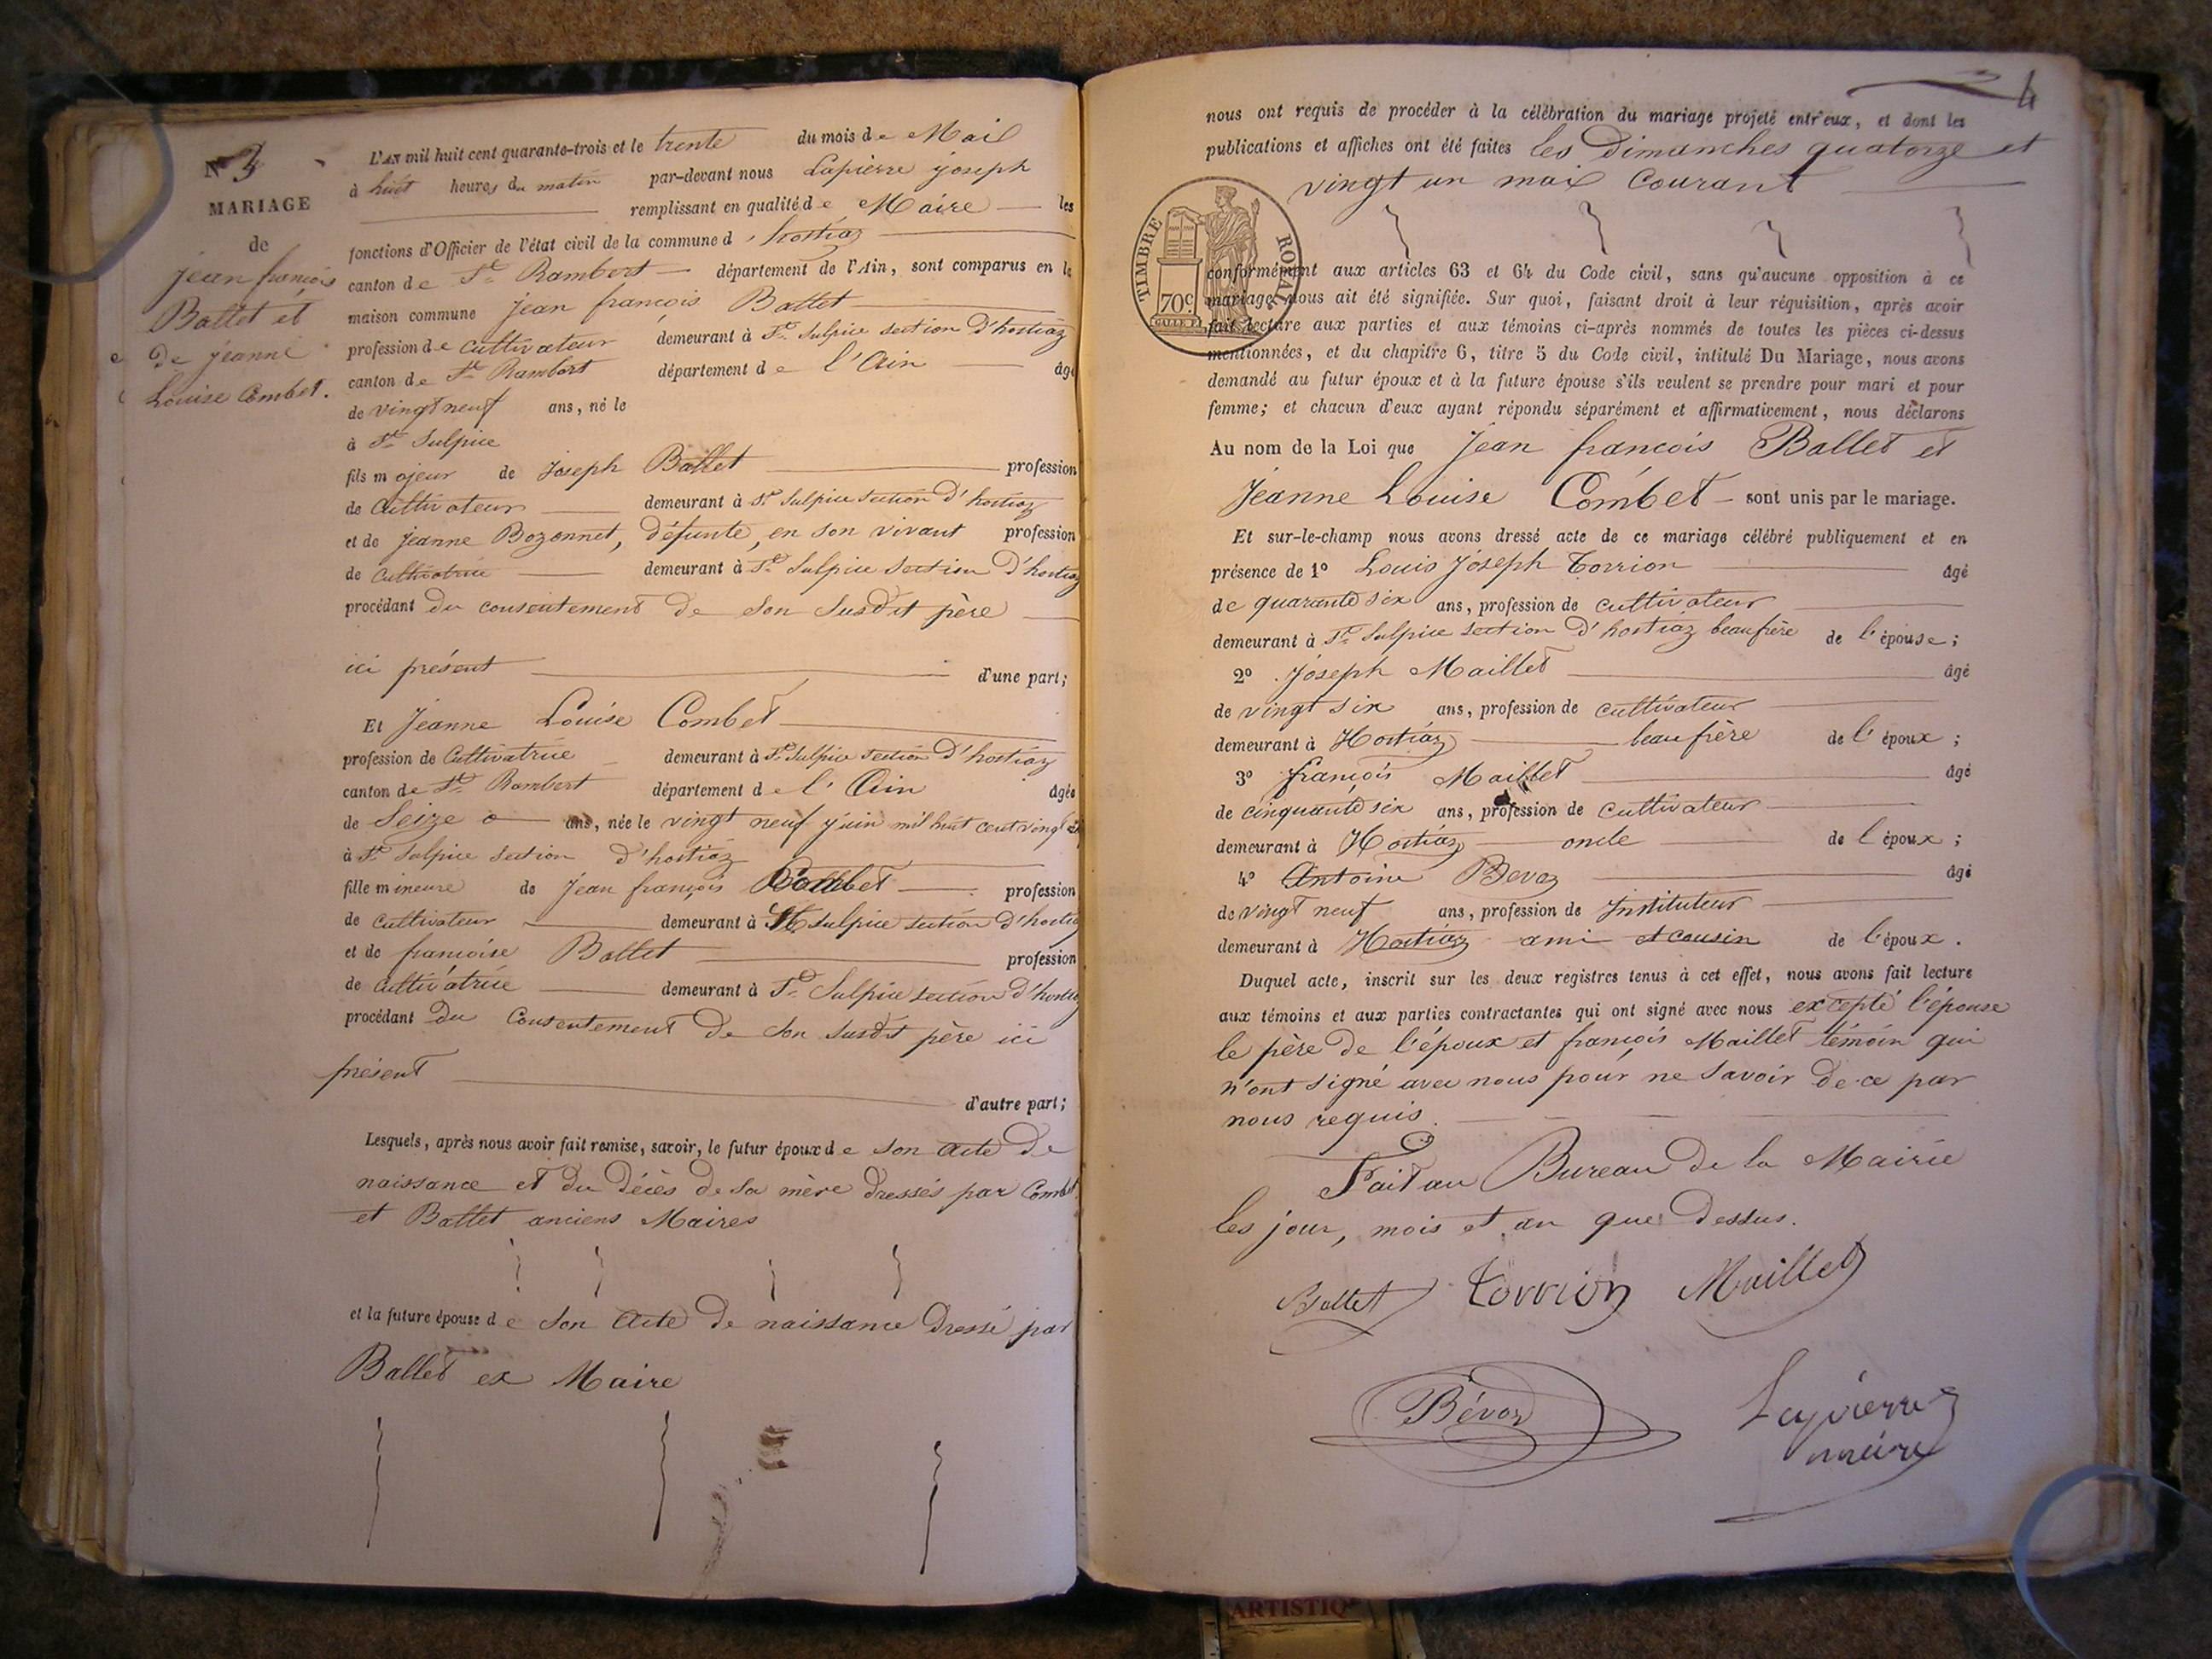 N° 3
MARIAGE
de
jean françois
Ballet et
de jeanne
Louise Combet.
L'AN mil huit cent quarante-trois et le trente du mois de Mai
à huit heures du matin par-devant nous Lapierre joseph
remplissant en qualité de Maire les
fonctions d'Officier de l'état civil de la commune d'hostiaz
canton de St Rambert département de l'Ain, sont comparus en la
maison commune jean françois Ballet
profession de cultivateur demeurant à St Sulpice section d'hostiaz
canton de St Rambert département de l'Ain âgé
de vingt neuf ans, né le
à St Sulpice
fils majeur de Joseph Ballet profession
de Cultivateur demeurant à St Sulpice section d'hostiaz
et de jeanne Bozonnet, défunte, en son vivant profession
de cultivatrice demeurant à St Sulpice section d'hostiaz
procédant du consentement de son susdit père
ici présent d'une part;
Et Jeanne Louise Combet
profession de Cultivatrice demeurant à St Sulpice section d'hostiaz
canton de St Rambert département de l'Ain âgée
de Seize ans, née le vingt neuf juin mil huit cent vingt
à St Sulpice section d'hostiaz
fille mineure de Jean françois Combet profession
de cultivateur demeurant à St Sulpice section d'hostiaz
et de françoise Ballet profession
de cultivatrice demeurant à St Sulpice section d'hostiaz
procédant du Consentement de son susdit père ici
présent
d'autre part;
Lesquels, après nous avoir fait remise, savoir, le futur époux de son acte de
naissance et du décès de sa mère dressés par Combet
et Ballet anciens Maires
et la future épouse de son acte de naissance dressé par
Ballet ex Maire
4
nous ont requis de procéder à la célébration du mariage projeté entr'eux, et dont les
publications et affiches ont été faites les Dimanches quatorze et
vingt un mai courant
TIMBRE ROYAL
70c
conformément aux articles 63 et 64 du Code civil, sans qu'aucune opposition à ce
mariage nous ait été signifiée. Sur quoi, faisant droit à leur réquisition, après avoir
fait lecture aux parties et aux témoins ci-après nommés de toutes les pièces ci-dessus
mentionnées, et du chapitre 6, titre 5 du Code civil, intitulé Du Mariage, nous avons
demandé au futur époux et à la future épouse s'ils veulent se prendre pour mari et pour
femme; et chacun d'eux ayant répondu séparément et affirmativement, nous déclarons
Au nom de la Loi que Jean francois Ballet et
Jeanne Louise Combet sont unis par le mariage.
Et sur-le-champ nous avons dressé acte de ce mariage célébré publiquement et en
présence de 1° Louis Joseph Torrion âgé
de quarante six ans, profession de cultivateur
demeurant à St Sulpice section d'hostiaz beaufrère de l'épouse;
2° Joseph Maillet âgé
de vingt six ans, profession de cultivateur
demeurant à Hostiaz beaufrère de l'époux;
3° françois Maillet âgé
de cinquante six ans, profession de cultivateur
demeurant à Hostiaz oncle de l'époux;
4° Antoine Bevoz âgé
de vingt neuf ans, profession de Instituteur
demeurant à Hostiaz ami et cousin de l'époux.
Duquel acte, inscrit sur les deux registres tenus à cet effet, nous avons fait lecture
aux témoins et aux parties contractantes qui ont signé avec nous excepté l'épouse
le père de l'époux et françois Maillet témoin qui
n'ont signé avec nous pour ne savoir de ce par
nous requis.
Fait au Bureau de la Mairie
les jour, mois et an que dessus.
Ballet Torrion Maillet
Bévoz Lapierre
maire
ARTISTIQ